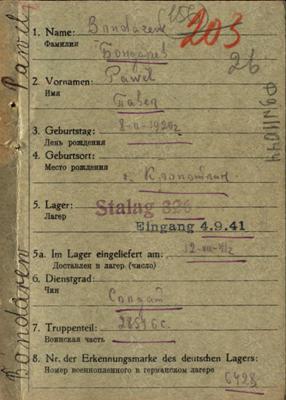 203
1. Name: Bondarew
Фамилия Бондарев
26
2. Vornamen: Pawel
Имя Павел
3. Geburtstag: 8-II-1920г
День рождения
4. Geburtsort:
Место рождения г. Кропоткин
5. Lager: Stalag 326
Лагер Eingang 4.9.41
5a. Im Lager eingeliefert am:
Доставлен в лагер (число)
6. Dienstgrad:
Чин Солдат
7. Truppenteil:
Воинская часть
8. Nr. der Erkennungsmarke des deutschen Lagers:
Номер военнопленного в германском лагере
6428
Pawel